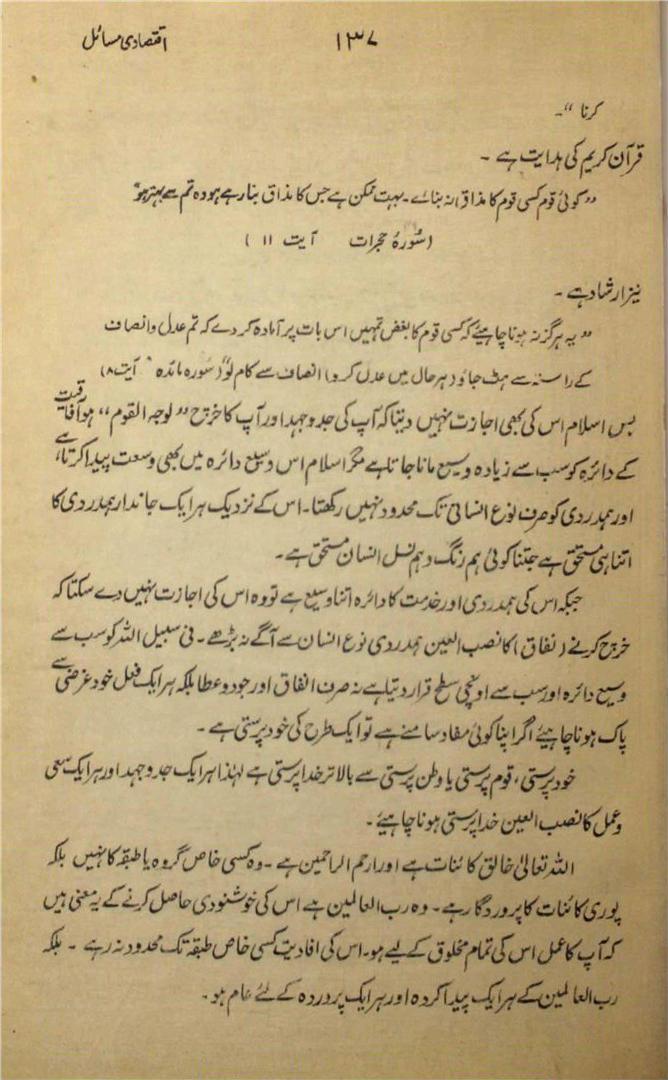 اقتصادی مسائل ۱۳۷
کرنا“۔
قرآن کریم کی ہدایت ہے ۔
”کوئی قوم کسی قوم کا مذاق نہ بنائے۔ بہت ممکن ہے جس کا مذاق بنا رہے ہو وہ تم سے بہتر ہو“
(سُورۂ حجرات آیت ۱۱ )
نیز ارشاد ہے ۔
”یہ ہرگز نہ ہونا چاہیئے کہ کسی قوم کا بغض تمہیں اس بات پر آمادہ کر دے کہ تم عدل و انصاف
کے راستہ سے ہٹ جاؤ (ہر حال میں عدل کرو) انصاف سے کام لو“ (سورہ مائدہ آیت ۸)
بس اسلام اس کی بھی اجازت نہیں دیتا کہ آپ کی جدوجہد اور آپ کا خرچ ”لوجہ القوم“ ہو آفاقیت
کے دائرہ کو سب سے زیادہ وسیع مانا جاتا ہے مگر اسلام اس وسیع دائرہ میں بھی وسعت پیدا کرتا ہے
اور ہمدردی کو صرف نوع انسانی تک محدود نہیں رکھتا۔ اس کے نزدیک ہر ایک جاندار ہمدردی کا
اتنا ہی مستحق ہے جتنا کوئی ہم رنگ و ہم نسل انسان مستحق ہے۔
جبکہ اس کی ہمدردی اور خدمت کا دائرہ اتنا وسیع ہے تو وہ اس کی اجازت نہیں دے سکتا کہ
خرچ کرنے (نفاق) کا نصب العین ہمدردی نوع انسان سے آگے نہ بڑھے۔ فی سبیل اللہ کو سب سے
وسیع دائرہ اور سب سے اونچی سطح قرار دیتا ہے نہ صرف انفاق اور جود و عطا بلکہ ہر ایک فعل خود غرضی سے
پاک ہونا چاہیئے اگر اپنا کوئی مفاد سامنے ہے تو ایک طرح کی خود پرستی ہے ۔
خود پرستی، قوم پرستی یا وطن پرستی سے بالاتر خدا پرستی ہے لہٰذا ہر ایک جدوجہد اور ہر ایک سعی
و عمل کا نصب العین خدا پرستی ہونا چاہیئے ۔
اللہ تعالیٰ خالق کائنات ہے اور ارحم الراحمین ہے ۔ وہ کسی خاص گروہ یا طبقہ کا نہیں بلکہ
پوری کائنات کا پروردگار ہے۔ وہ رب العالمین ہے اس کی خوشنودی حاصل کرنے کے یہ معنی ہیں
کہ آپ کا عمل اس کی تمام مخلوق کے لیے ہو۔ اس کی افادیت کسی خاص طبقہ تک محدود نہ رہے ۔ بلکہ
رب العالمین کے ہر ایک پیدا کردہ اور ہر ایک پروردہ کے لئے عام ہو ۔